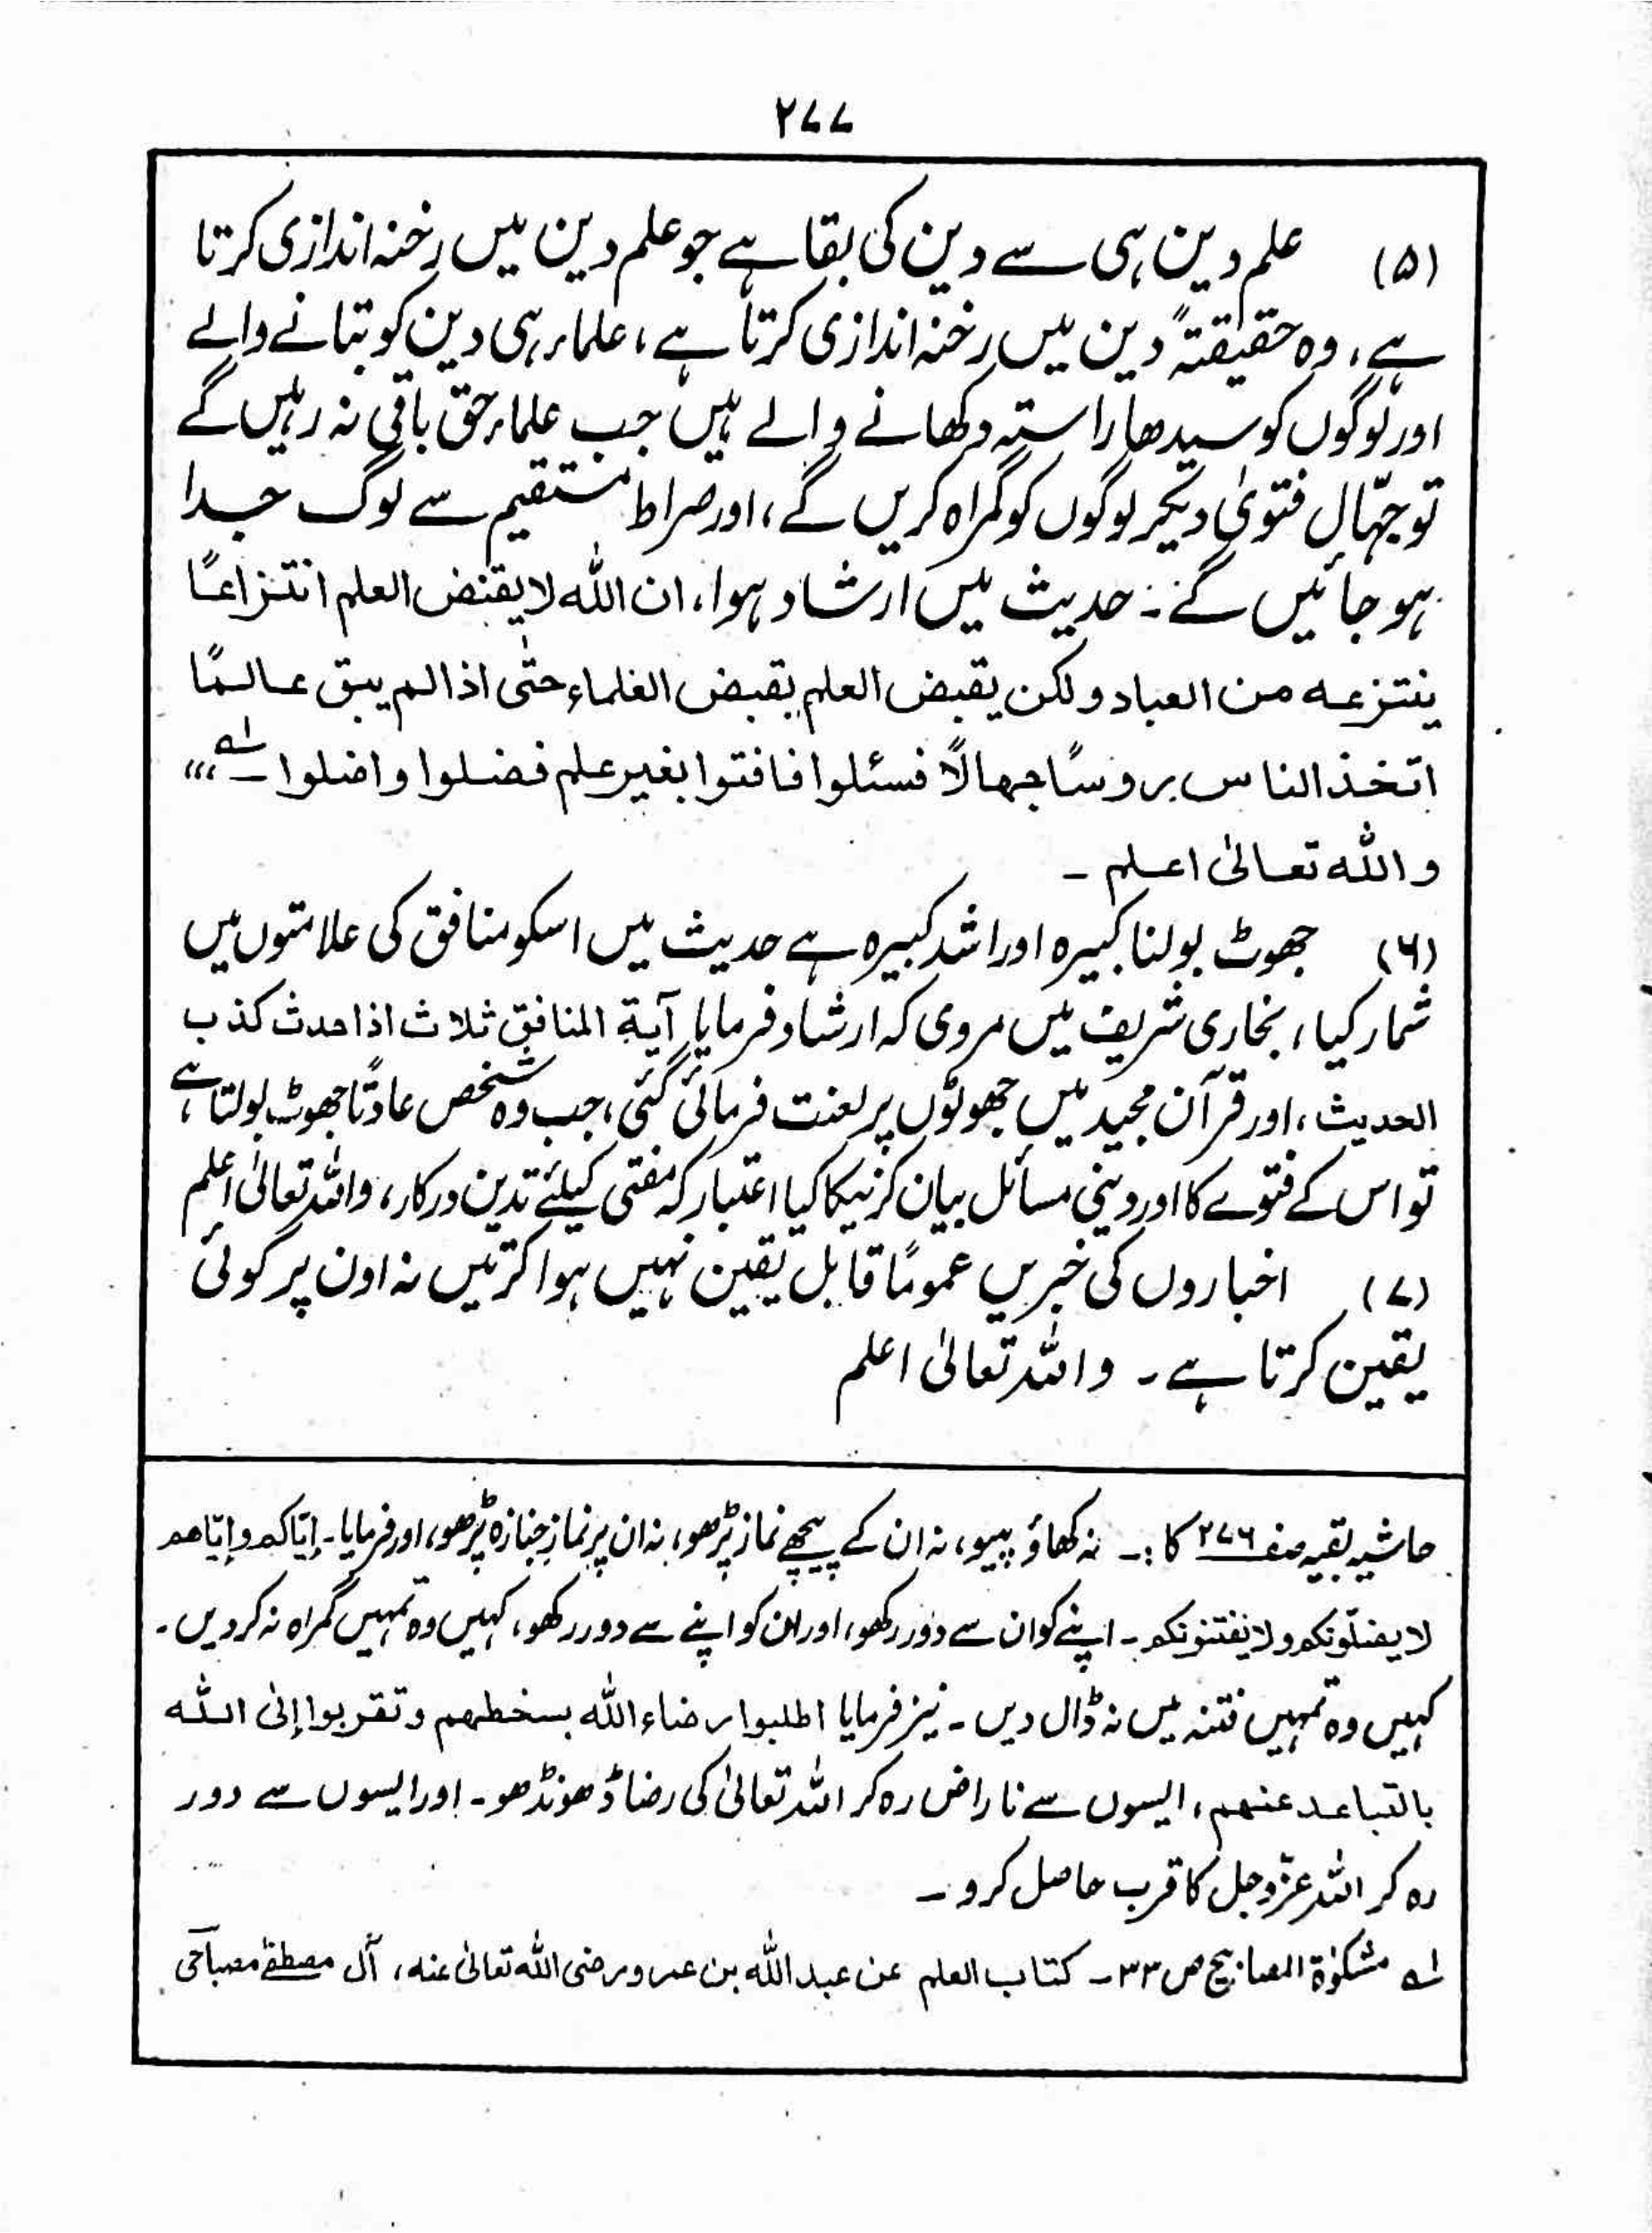 ۲۷۷
(۵) علم دین ہی سے دین کی بقا ہے جو علم دین میں رخنہ اندازی کرتا
ہے، وہ حقیقتہً دین میں رخنہ اندازی کرتا ہے، علماء ہی دین کو بتانے والے
اور لوگوں کو سیدھا راستہ دکھانے والے ہیں جب علماء حق باقی نہ رہیں گے
تو جہّال فتویٰ دیکر لوگوں کو گمراہ کریں گے، اور صراط مستقیم سے لوگ جدا
ہو جائیں گے۔ حدیث میں ارشاد ہوا، ان اللہ لا یقبض العلم انتزاعًا
ینتزعہ من العباد ولکن یقبض العلم بقبض العلماء حتّٰی اذا لم یبق عالمًا
اتخذ الناس روسًا جہالًا فسئلوا فافتوا بغیر علم فضلوا واضلوا ـ لہ ،،،
واللہ تعالیٰ اعلم ۔
(۶) جھوٹ بولنا کبیرہ اور اشد کبیرہ ہے حدیث میں اسکو منافق کی علامتوں میں
شمار کیا، بخاری شریف میں مروی کہ ارشاد فرمایا آیة المنافق ثلاث اذا حدث کذب
الحدیث، اور قرآن مجید میں جھوٹوں پر لعنت فرمائی گئی، جب وہ شخص عادتًا جھوٹ بولتا ہے
تو اس کے فتوے کا اور دینی مسائل بیان کرنیکا کیا اعتبار کہ مفتی کیلئے تدین درکار، واللہ تعالیٰ اعلم
(۷) اخباروں کی خبریں عمومًا قابل یقین نہیں ہوا کرتیں نہ اون پر کوئی
یقین کرتا ہے ۔ واللہ تعالیٰ اعلم
حاشیہ بقیہ صفـ ۲۷۶ کا :۔ نہ کھاؤ پیو، نہ ان کے پیچھے نماز پڑھو، نہ ان پر نمازِ جنازہ پڑھو، اور فرمایا۔ إیّاکم وإیّاھم
لا یضلّونکم ولا یفتنونکم ۔ اپنے کو ان سے دور رکھو، اور ان کو اپنے سے دور رکھو، کہیں وہ تمہیں گمراہ نہ کر دیں ۔
کہیں وہ تمہیں فتنہ میں نہ ڈال دیں ۔ نیز فرمایا اطلبوا رضاء اللہ بسخطهم وتقربوا إلیٰ اللہ
بالتباعد عنهم، ایسوں سے ناراض رہ کر اللہ تعالیٰ کی رضا ڈھونڈھو۔ اور ایسوں سے دور
رہ کر اللہ عزّوجل کا قرب حاصل کرو ۔
لہ مشکوٰۃ المصابیح ص ۳۳ ۔ کتاب العلم عن عبد اللہ بن عمرو رضی اللہ تعالیٰ عنہ، آل مصطفےٰ مصباحی